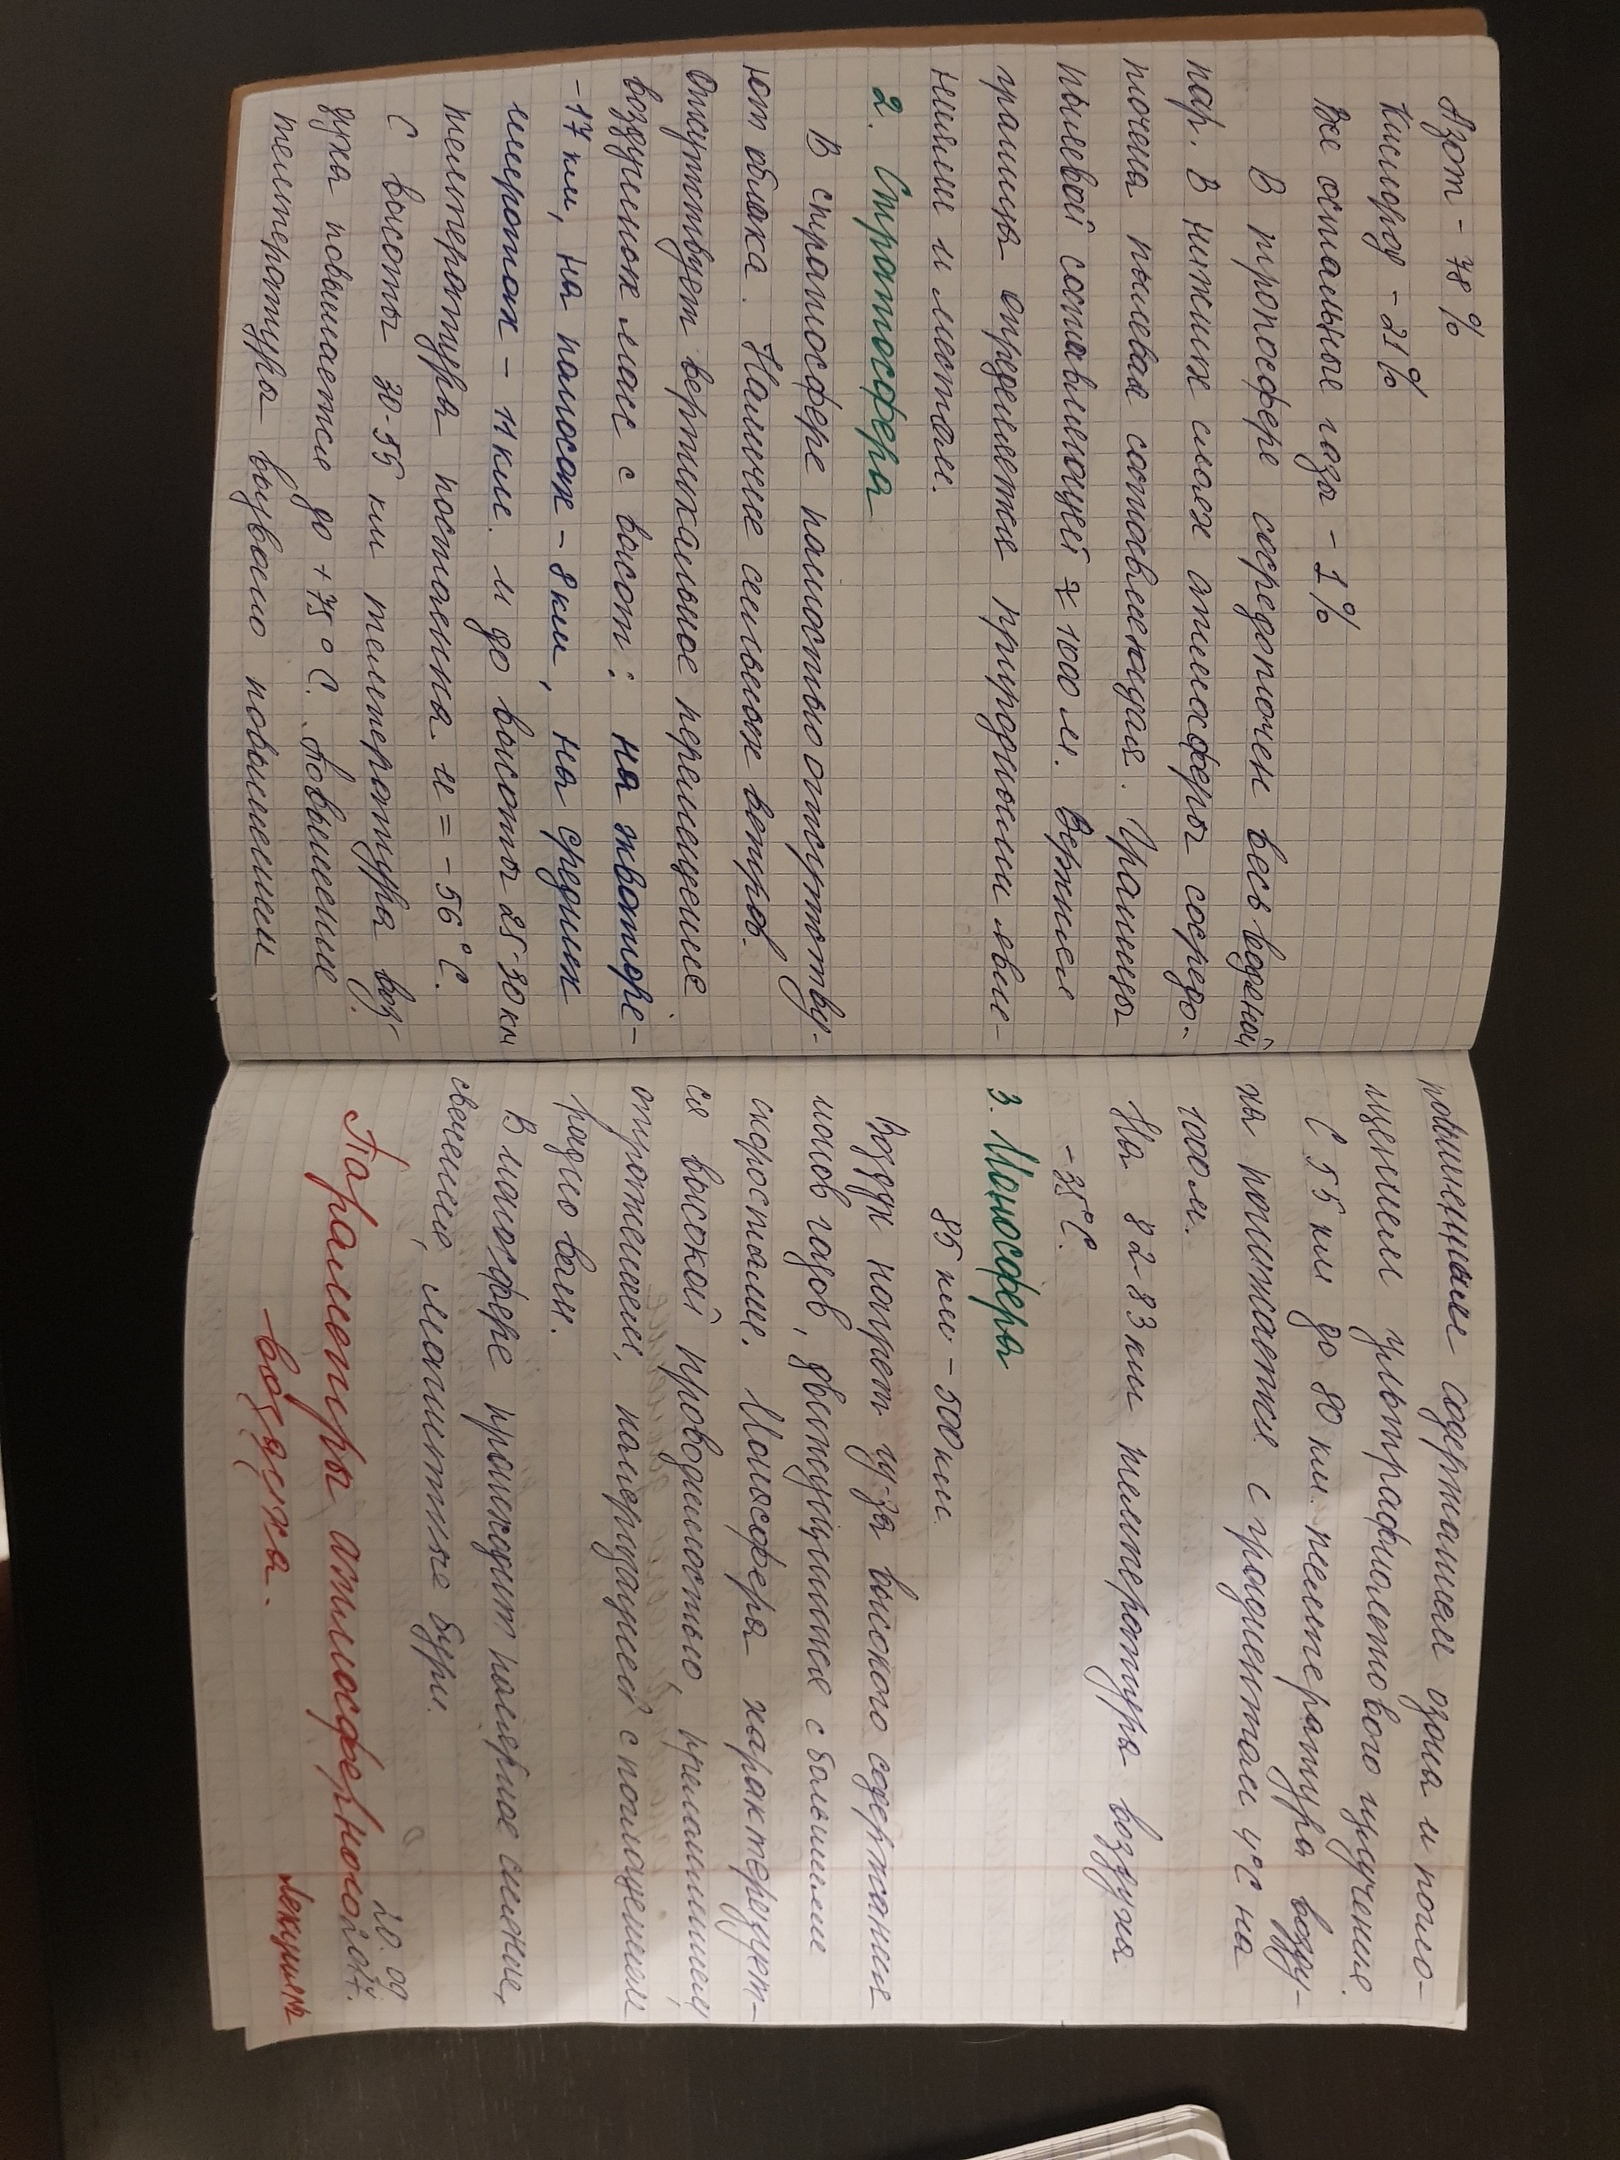 Азот - 78 %
Кислород - 21%
Все остальные газы - 1%
В тропосфере сосредоточен весь водяной
пар. В нижних слоях атмосферы сосредо-
точена пылевая составляющая. Границы
пылевой составляющей ≈ 1000 м. Верхняя
граница определяется природными явле-
ниями и местом.
2. Стратосфера
В стратосфере полностью отсутству-
ют облака. Наличие сильных ветров.
Отсутствует вертикальное перемещение
воздушных масс с высот: на экваторе-
-17 км, на полюсах - 8 км, на средних
широтах - 11 км. и до высоты 25-30 км
температура постоянна и = -56°С.
С высоты 30-55 км температура воз-
духа повышается до +75°С. Повышение
температуры вызвано повышением
повышенным содержанием озона и погло-
щением ультрафиолетового излучения.
С 55 км до 80 км. температура возду-
ха понижается с градиентом 4°С на
1000 м.
На 82-83 км температура воздуха
-35°С.
3. Ионосфера
85 км - 500 км.
Воздух нагрет из-за высокого содержания
ионов газов, движущихся с большими
скоростями. Ионосфера характеризует-
ся высокой проводимостью, преломлением,
отражением, поляризацией с поглощением
радио волн.
В ионосфере происходит полярное сияние,
свечения, магнитные бури.
20.09.
Параметры атмосферного 2017.
воздуха. Лекция №2